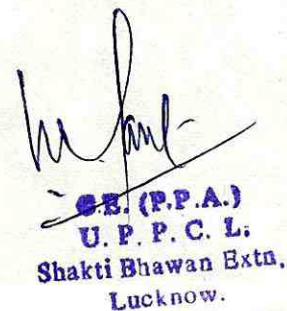 (P.P.A.)
U. P. P. C. L.
Shakti Bhawan Extn.
Lucknow.